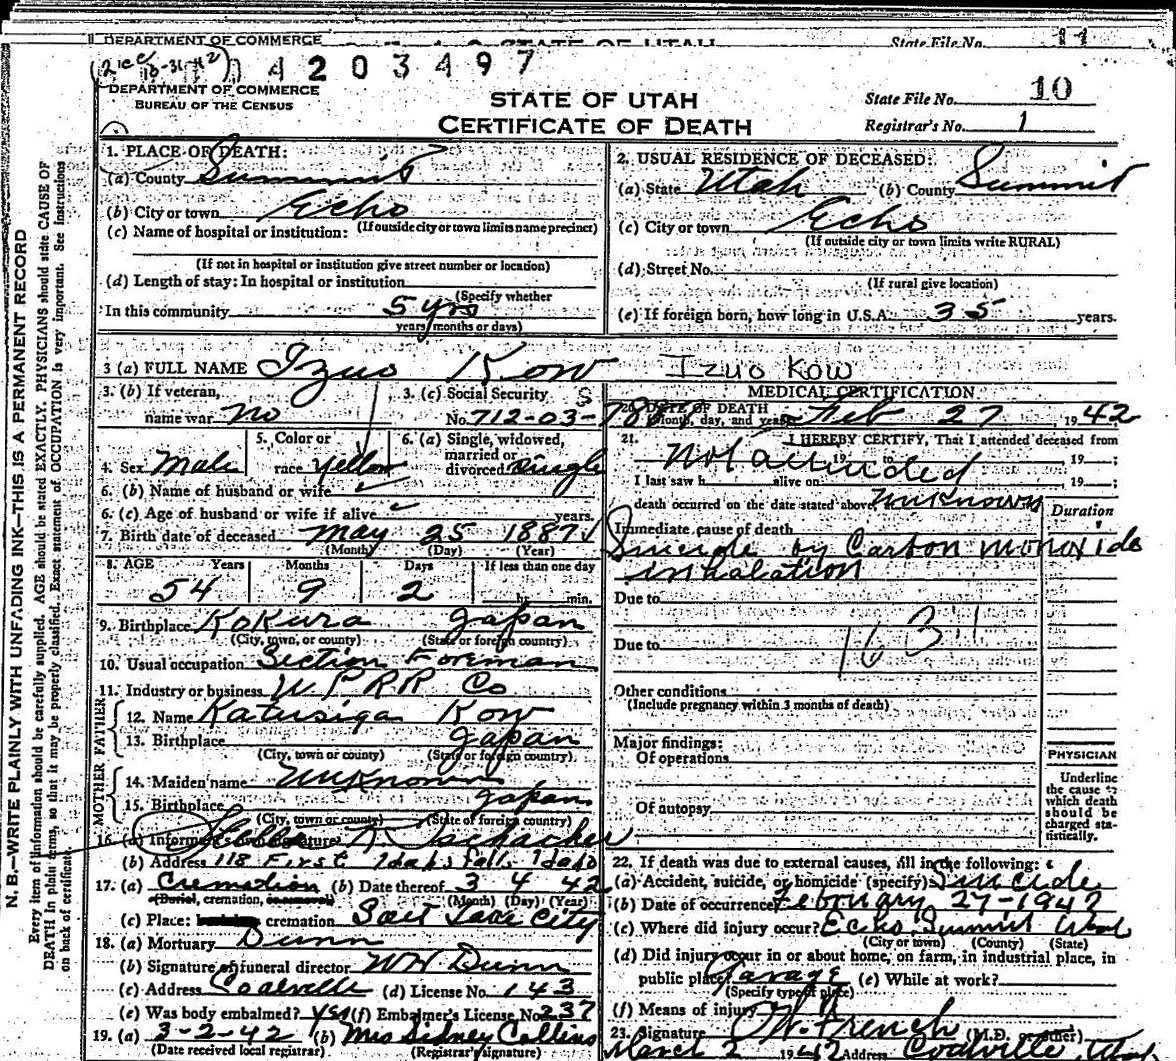 DEPARTMENT OF COMMERCE STATE OF UTAH State File No. 11
2 cc 10-31-42 04203497
DEPARTMENT OF COMMERCE
BUREAU OF THE CENSUS
STATE OF UTAH
CERTIFICATE OF DEATH
State File No. 10
Registrar's No. 1
N. B.—WRITE PLAINLY WITH UNFADING INK—THIS IS A PERMANENT RECORD
Every item of information should be carefully supplied. AGE should be stated EXACTLY. PHYSICIANS should state CAUSE OF
DEATH in plain terms, so that it may be properly classified. Exact statement of OCCUPATION is very important. See instructions
on back of certificate.
1. PLACE OF DEATH:
(a) County Summit
(b) City or town Echo
(If outside city or town limits name precinct)
(c) Name of hospital or institution:
(If not in hospital or institution give street number or location)
(d) Length of stay: In hospital or institution
(Specify whether
In this community 5 yrs
years, months or days)
2. USUAL RESIDENCE OF DECEASED:
(a) State Utah (b) County Summit
(c) City or town Echo
(If outside city or town limits write RURAL)
(d) Street No.
(If rural give location)
(e) If foreign born, how long in U.S.A. 35 years.
3 (a) FULL NAME Izuo Kow Izuo Kow
3. (b) If veteran,
name war no
3. (c) Social Security
No. 712-03-
4. Sex Male
5. Color or
race yellow
6. (a) Single, widowed,
married or
divorced single
6. (b) Name of husband or wife
6. (c) Age of husband or wife if alive years.
7. Birth date of deceased May 25 1887
(Month) (Day) (Year)
8. AGE Years Months Days If less than one day
54 9 2 hr. min.
9. Birthplace Kokura Japan
(City, town, or county) (State or foreign country)
10. Usual occupation Section Foreman
11. Industry or business U P R R Co
FATHER
12. Name Katusiga Kow
13. Birthplace Japan
(City, town or county) (State or foreign country)
MOTHER
14. Maiden name Unknown
15. Birthplace Japan
(City, town or county) (State of foreign country)
16. (a) Informant's own signature
(b) Address 118 First Idaho Falls Idaho
17. (a) Cremation (b) Date thereof 3 4 42
(Burial, cremation, or removal) (Month) (Day) (Year)
(c) Place: cremation Salt Lake City
18. (a) Mortuary Dunn
(b) Signature of funeral director W H Dunn
(c) Address Coalville (d) License No. 143
(e) Was body embalmed? yes (f) Embalmer's License No. 237
19. (a) 3-2-42 (b) Mrs Sidney Collins
(Date received local registrar) (Registrar's signature)
MEDICAL CERTIFICATION
20. DATE OF DEATH
(Month, day, and year) Feb 27 1942
21. I HEREBY CERTIFY, That I attended deceased from
Not attended 19 to 19 ;
I last saw h alive on 19 ;
death occurred on the date stated above, unknown
Duration
Immediate cause of death
Suicide by Carbon monoxide
inhalation
Due to
Due to 163-1
Other conditions
(Include pregnancy within 3 months of death)
Major findings:
Of operations
Of autopsy
PHYSICIAN
Underline
the cause to
which death
should be
charged sta-
tistically.
22. If death was due to external causes, fill in the following:
(a) Accident, suicide, or homicide (specify) Suicide
(b) Date of occurrence February 27-1942
(c) Where did injury occur? Echo Summit Utah
(City or town) (County) (State)
(d) Did injury occur in or about home, on farm, in industrial place, in
public place? Garage (e) While at work?
(Specify type of place)
(f) Means of injury
23. Signature French (M.D. or other)
March 2 1942 Address Coalville Utah